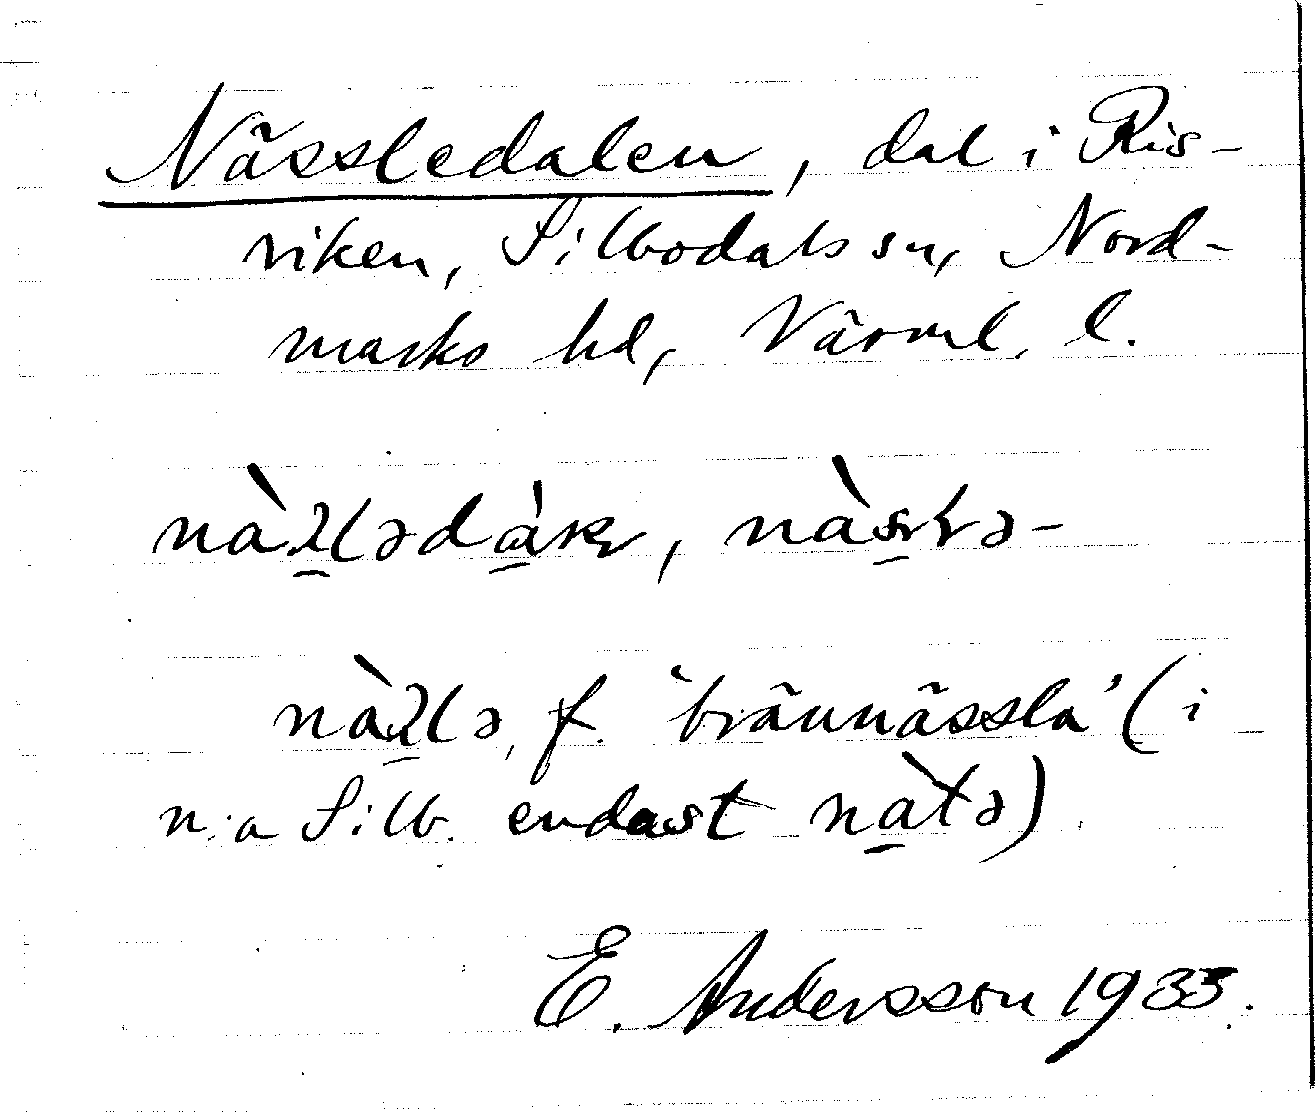 Nässledalen, dal i Ris-
riken, Silbodals sn, Nord-
marks hd, Värml. l.
f. 'brännässla' (i
n:a Silb. endast nàtə)
E. Andersson 1933.